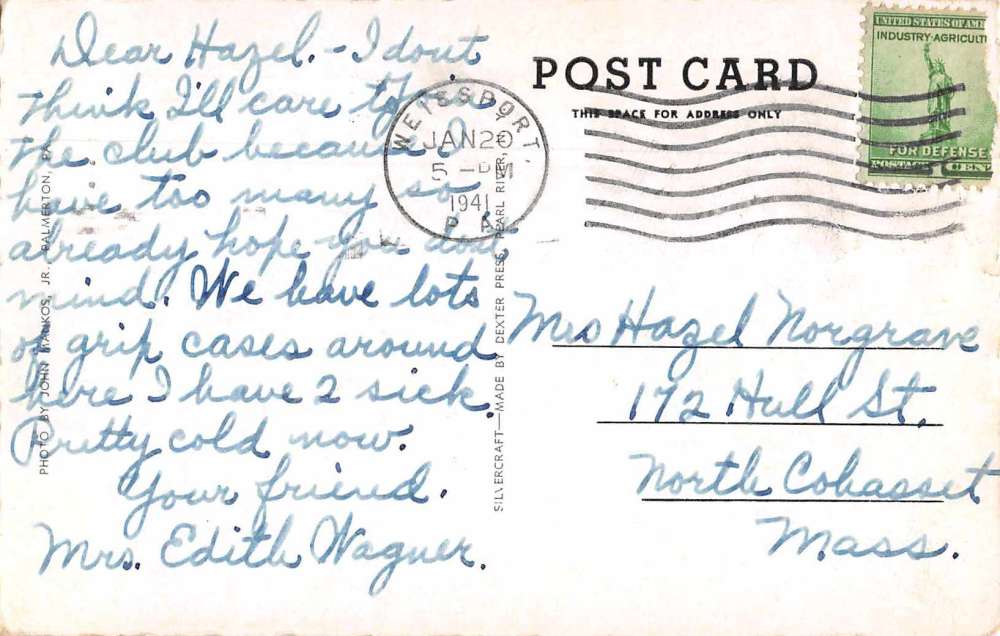 Dear Hazel. - I dont
think I'll care to join
the club because I
have too many so
already hope you dont
mind. We have lots
of grip cases around
here I have 2 sick.
Pretty cold now.
Your friend.
Mrs. Edith Wagner.
PHOTO BY JOHN MALKOS, JR. PALMERTON, PA.
SILVERCRAFT—MADE BY DEXTER PRESS, PEARL RIVER,
POST CARD
THIS SPACE FOR ADDRESS ONLY
WEISSPORT,
JAN 20
5 - PM
1941
PA
UNITED STATES OF AME
INDUSTRY·AGRICULTU
FOR DEFENSE
POSTAGE 1 CENT
Mrs Hazel Norgrave
172 Hull St.
North Cohasset
Mass.